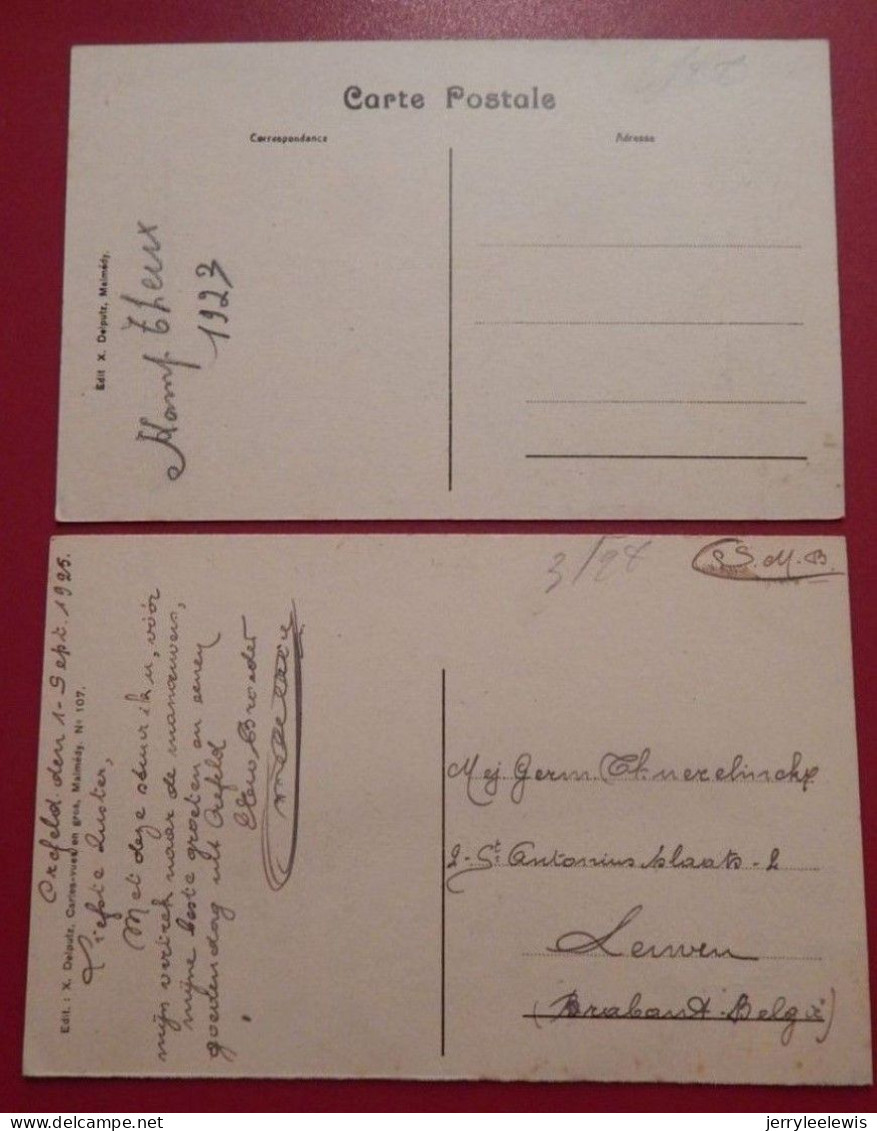 Carte Postale
Correspondance
Adresse
Edit X. Delputz, Malmédy.
Theux
1923
3/28
S.M.B.
Edit. : X. Delputz, Cartes-vues en gros, Malmédy. No 107.
Crefeld den 1-Sept. 1925.
Liefste Zuster,
Met deze stuur ik u, vóór
mijn vertrek naar de manœuvers,
mijne beste groeten en eenen
goeden dag uit Crefeld
Broeder
Mej Germ.
2-St Antonius plaats-2
Leuven
(Brabant-België)
jerryleelewis